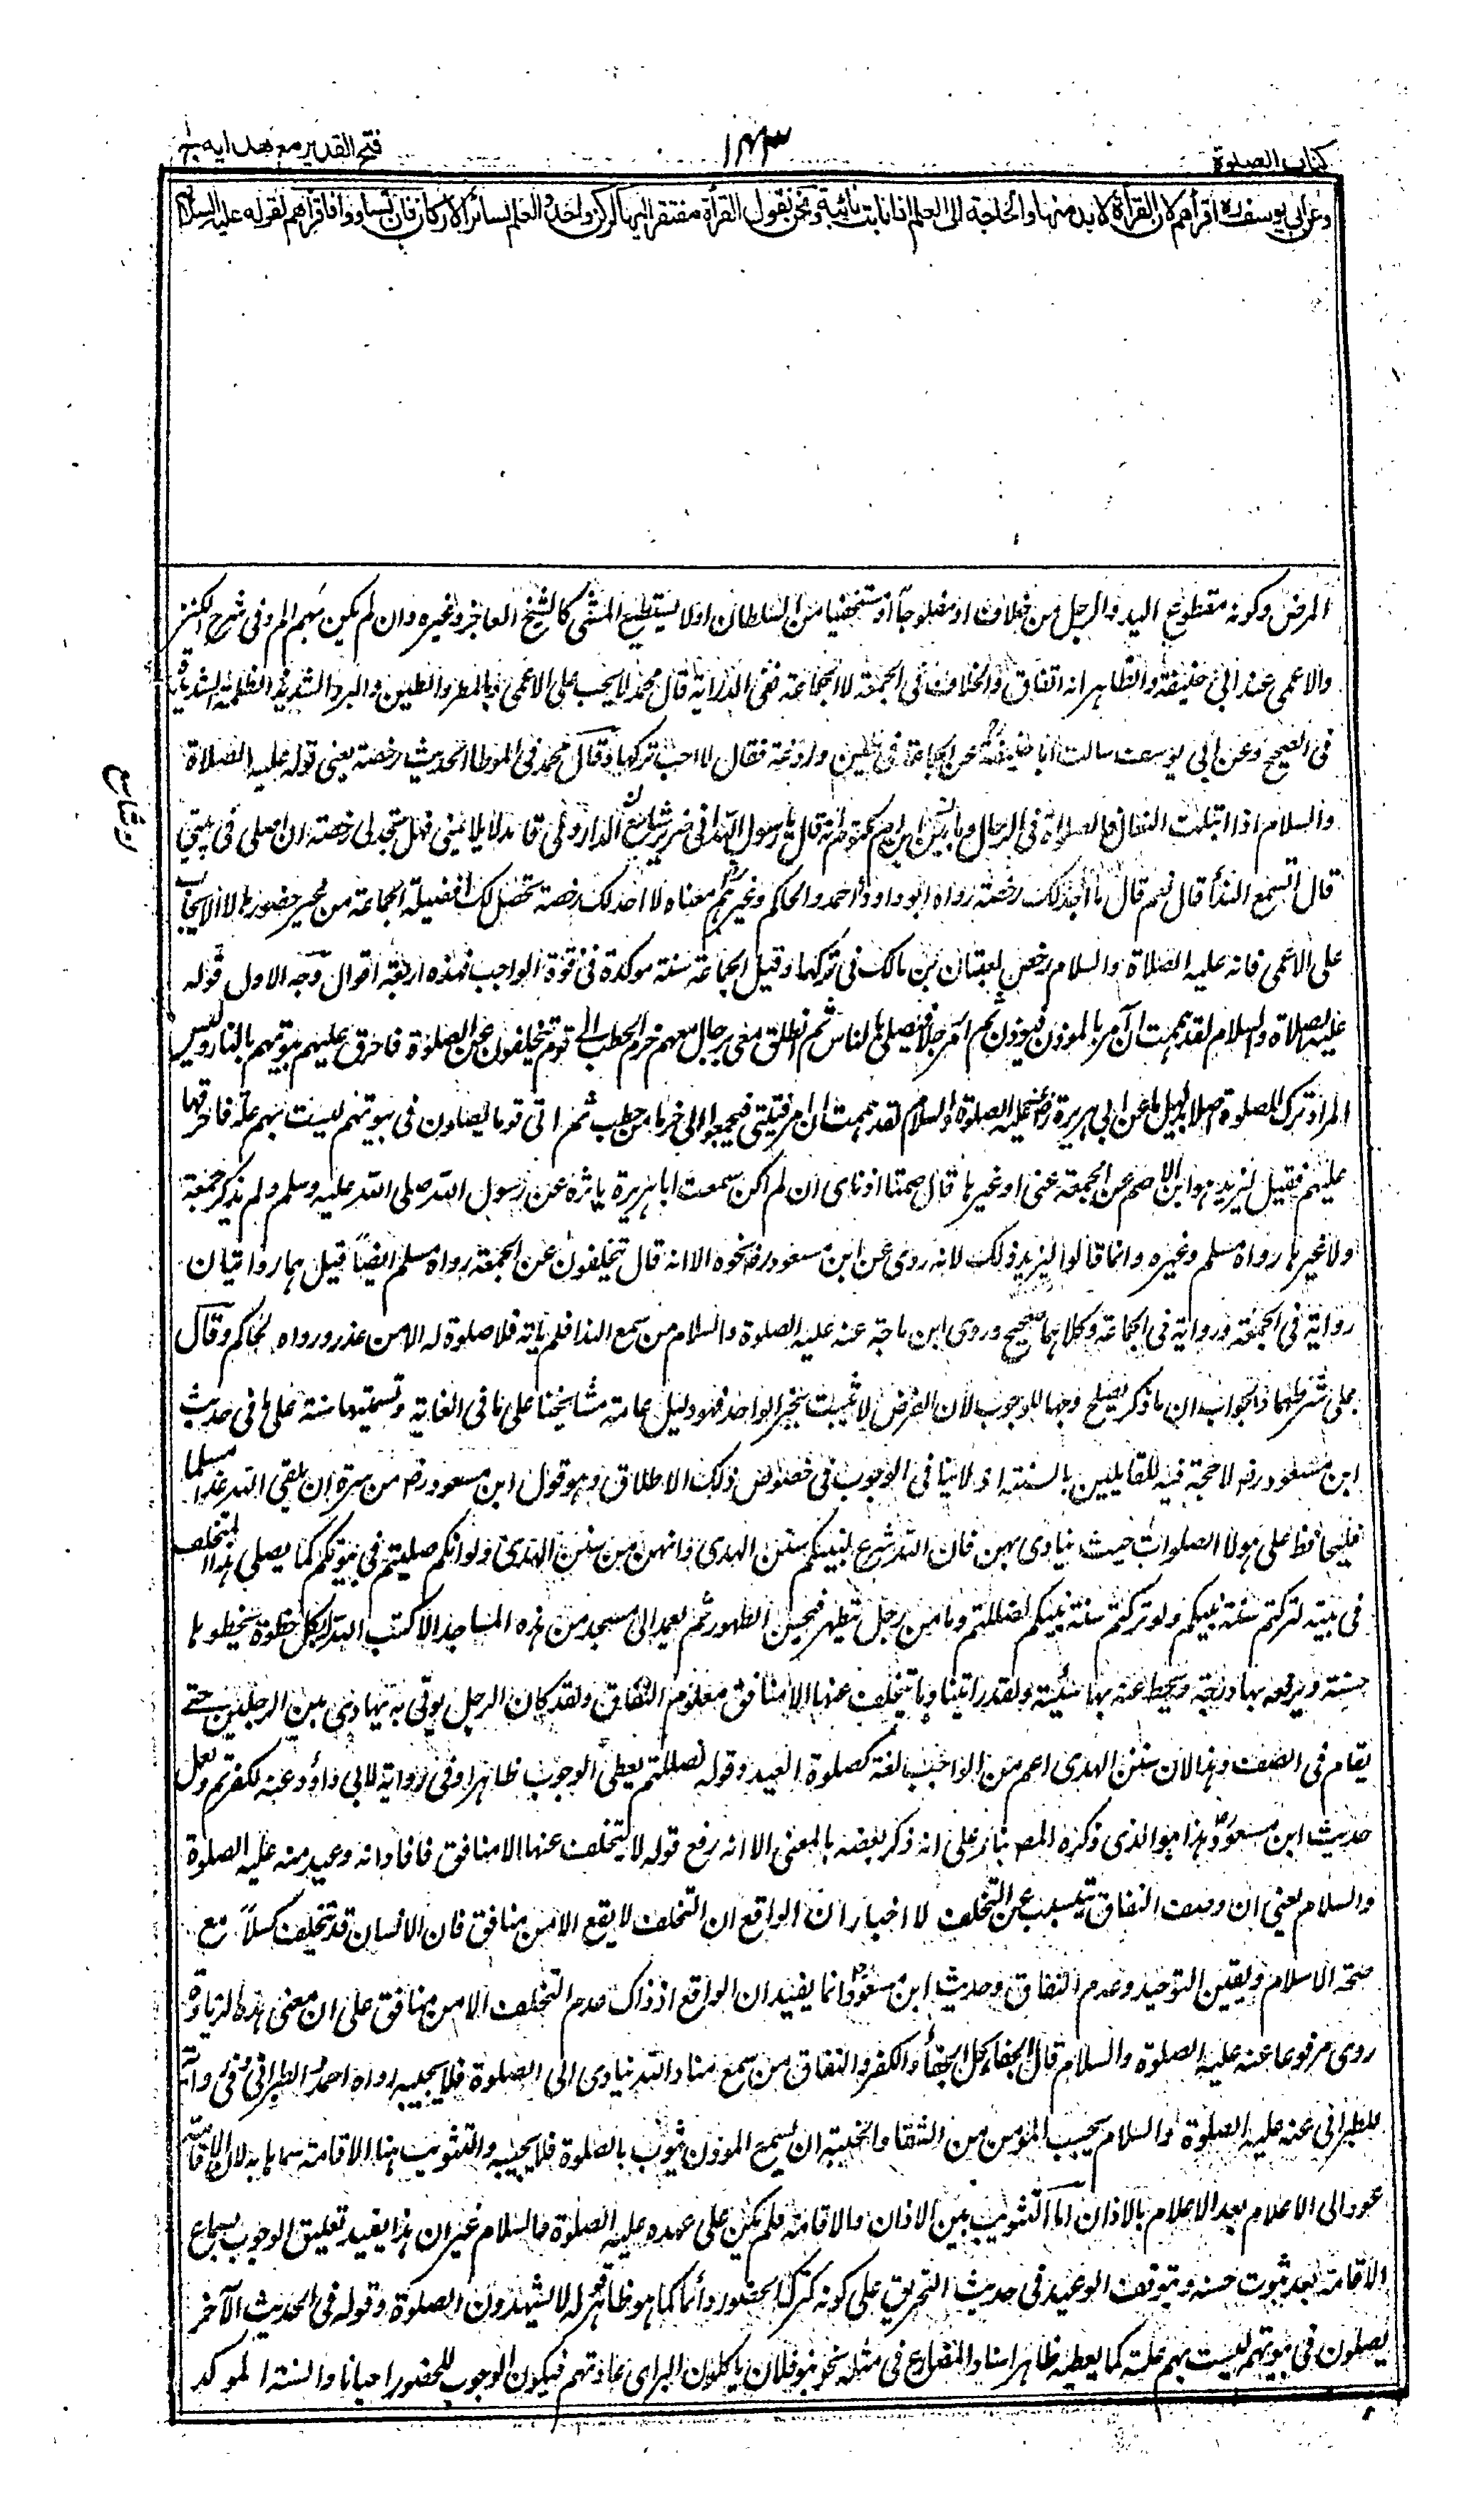 كتاب الصلوة
١٤٣
فتح القدير مع هدايه ج
وعن ابي يوسف ره اقرأهم لان القرأة لا بد منها والحاجة الى العلم اذا نابت نائبة ونحن نقول القرأة مفتقر اليها لركن واحد والعلم لسائر الاركان فان تساووا فاقرأهم لقوله عليه السلام
المرض وكونه مقطوع اليد والرجل من خلاف او مفلوجا او مستخفيا من السلطان اولا يستطيع المشى كالشيخ العاجز وغيره وان لم يكن بهم الم وفى شرح الكنز
والاعمى عند ابى حنيفة والظاهر انه اتفاق والخلاف فى الجمعة لا الجماعة ففى الدراية قال محمد لا يجب على الاعمى وبالمطر والطين والبرد الشديد والظلمة الشديدة
فى الصحيح وعن ابى يوسف سالت ابا حنيفة عن الجماعة فى طين وردغة فقال لا احب تركها وقال محمد فى الموطا الحديث رخصة يعنى قوله عليه الصلاة
والسلام اذا ابتلت النعال فالصلاة فى الرحال وما عن ابن ام مكتوم انه قال يا رسول الله انى ضرير شاسع الدار ولى قائد لا يلائمنى فهل تجد لى رخصة ان اصلى فى بيتى
قال اتسمع الندأ قال نعم قال ما اجد لك رخصة رواه ابو داود واحمد والحاكم وغيرهم معناه لا اجد لك رخصة تحصل لك فضيلة الجماعة من غير حضورها لا الايجاب
على الاعمى فانه عليه الصلاة والسلام رخص لعتبان بن مالك فى تركها وقيل الجماعة سنة موكدة فى قوة الواجب فهذه اربعة اقوال وجه الاول قوله
عليه الصلاة والسلام لقد هممت ان آمر بالموذن فيوذن ثم آمر رجلا فيصلى بالناس ثم انطلق معى برجال معهم حزم الحطب الى قوم يتخلفون عن الصلوة فاحرق عليهم بيوتهم بالنار وليس
المراد ترك الصلوة اصلا بدليل ما عن ابى هريرة رض عنه عليه الصلوة والسلام لقد هممت ان امر فتيتى فيجمعوا لى حزما من حطب ثم اتى قوما يصلون فى بيوتهم ليست بهم علة فاحرقها
عليهم فقيل ليزيد هو ابن الاصم عن الجمعة عنى او غيرها قال صمتا اذناى ان لم اكن سمعت ابا هريرة ياثره عن رسول الله صلى الله عليه وسلم ولم يذكر جمعة
ولا غيرها رواه مسلم وغيره وانما قالوا ليزيد ذلك لانه روى عن ابن مسعود رض نحوه الا انه قال يتخلفون عن الجمعة رواه مسلم ايضاً قيل هما روايتان
رواية فى الجمعة ورواية فى الجماعة وكلاهما صحيح وروى ابن ماجة عنه عليه الصلوة والسلام من سمع الندا فلم ياته فلا صلوة له الا من عذر ورواه الحاكم وقال
على شرطهما والجواب ان ما ذكر يصلح وجها للوجوب لان الفرض لا يثبت بخبر الواحد فهو دليل عامة مشايخنا على ما فى الغاية وتسميتها سنة على ما فى حديث
ابن مسعود رض لا حجة فيه للقايلين بالسنة اذ لا ينافى الوجوب فى خصوص ذلك الاطلاق وهو قول ابن مسعود رض من سره ان يلقى الله غدا مسلما
فليحافظ على هولاء الصلوات حيث ينادى بهن فان الله شرع لنبيكم سنن الهدى وانهن من سنن الهدى ولو انكم صليتم فى بيوتكم كما يصلى هذا المتخلف
فى بيته لتركتم سنة نبيكم ولو تركتم سنة نبيكم لضللتم وما من رجل يتطهر فيحسن الطهور ثم يعمد الى مسجد من هذه المساجد الا كتب الله له بكل خطوة يخطوها
حسنة ويرفعه بها درجة ويحط عنه بها سيئة ولقد رايتنا وما يتخلف عنها الا منافق معلوم النفاق ولقد كان الرجل يوتى به يهادى بين الرجلين حتى
يقام فى الصف وهذا لان سنن الهدى اعم من الواجب لغة كصلوة العيد وقوله لضللتم يعطى الوجوب ظاهرا وفى رواية لابى داؤد عنه لكفرتم ولعل
حديث ابن مسعود هذا هو الذى ذكره المص بناء على انه ذكر بعضه بالمعنى الا انه رفع قوله لا يتخلف عنها الا منافق فافاد انه وعيد منه عليه الصلوة
والسلام يعنى ان وصف النفاق يتسبب عن التخلف لا اخبار ان الواقع ان التخلف لا يقع الا من منافق فان الانسان قد يتخلف كسلاً مع
صحة الاسلام ويقين التوحيد وعدم النفاق وحديث ابن مسعود انما يفيد ان الواقع اذ ذاك عدم التخلف الا من منافق على ان معنى هذه الزيادة
روى مرفوعا عنه عليه الصلوة والسلام قال الجفاء كل الجفأ والكفر والنفاق من سمع مناد الله ينادى الى الصلوة فلا يجيبه رواه احمد والطبرانى وفى رواية
للطبرانى عنه عليه الصلوة والسلام بحسب المومن من الشقا والخيبة ان يسمع الموذن يثوب بالصلوة فلا يجيبه والتثويب هنا الاقامة سماها به لان الاقامة
عود الى الاعلام بعد الاعلام بالاذان اما التثويب بين الاذان والاقامة فلم يكن على عهده عليه الصلوة والسلام غير ان هذا يفيد تعليق الوجوب بسماع
الاقامة بعد ثبوت حسنه وبتوقف الوعيد فى حديث التحريق على كونه كترك الحضور دائما كما هو ظاهر قوله لا يشهدون الصلوة وقوله فى الحديث الآخر
يصلون فى بيوتهم ليست بهم علة كما يعطيه ظاهر اسناد المضارع فى مثله نحو بنو فلان ياكلون البر اى عادتهم فيكون الوجوب للحضور احيانا والسنة الموكد